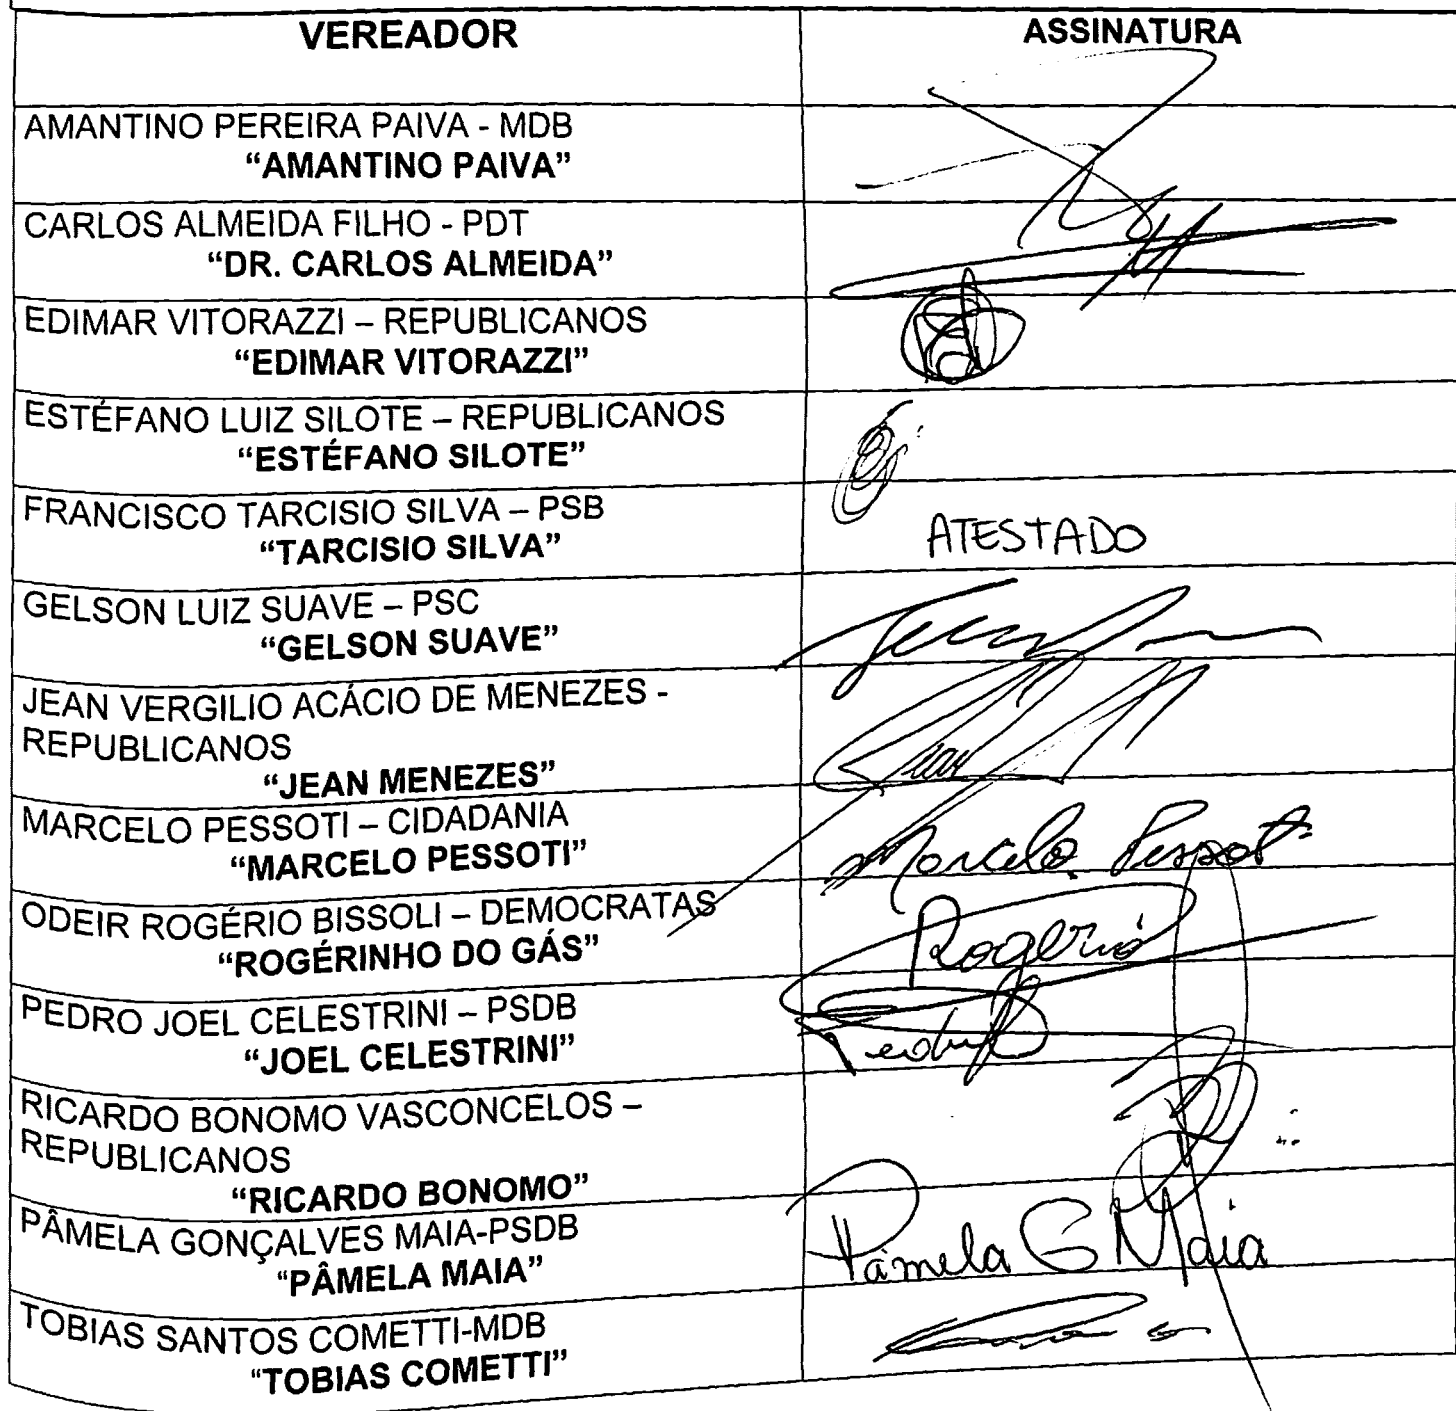 VEREADOR ASSINATURA
AMANTINO PEREIRA PAIVA - MDB
“AMANTINO PAIVA”
CARLOS ALMEIDA FILHO - PDT
“DR. CARLOS ALMEIDA”
EDIMAR VITORAZZI – REPUBLICANOS
“EDIMAR VITORAZZI”
ESTÉFANO LUIZ SILOTE – REPUBLICANOS
“ESTÉFANO SILOTE”
FRANCISCO TARCISIO SILVA – PSB
“TARCISIO SILVA” ATESTADO
GELSON LUIZ SUAVE – PSC
“GELSON SUAVE”
JEAN VERGILIO ACÁCIO DE MENEZES -
REPUBLICANOS
“JEAN MENEZES” Jean
MARCELO PESSOTI – CIDADANIA
“MARCELO PESSOTI” Marcelo Pessoti
ODEIR ROGÉRIO BISSOLI – DEMOCRATAS
“ROGÉRINHO DO GÁS” Rogerio
PEDRO JOEL CELESTRINI – PSDB
“JOEL CELESTRINI”
RICARDO BONOMO VASCONCELOS –
REPUBLICANOS
“RICARDO BONOMO”
PÂMELA GONÇALVES MAIA-PSDB
“PÂMELA MAIA” Pâmela G Maia
TOBIAS SANTOS COMETTI-MDB
“TOBIAS COMETTI”